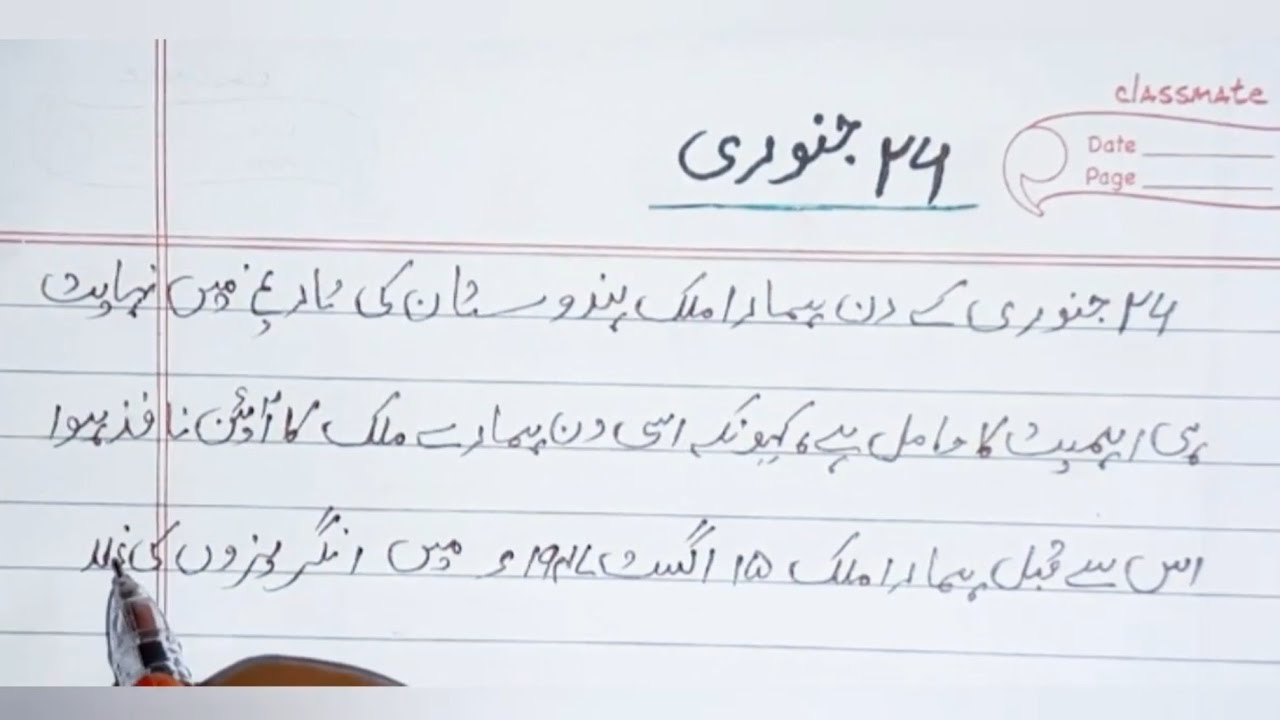 classmate
Date
Page
۲۶ جنوری
۲۶ جنوری کے دن ہمارا ملک ہندوستان کی تاریخ میں نہایت
ہی اہمیت کا حامل ہے، کیونکہ اسی دن ہمارے ملک کا آئین نافذ ہوا
اس سے قبل ہمارا ملک ۱۵ اگست ۱۹۴۷ء میں انگریزوں کی